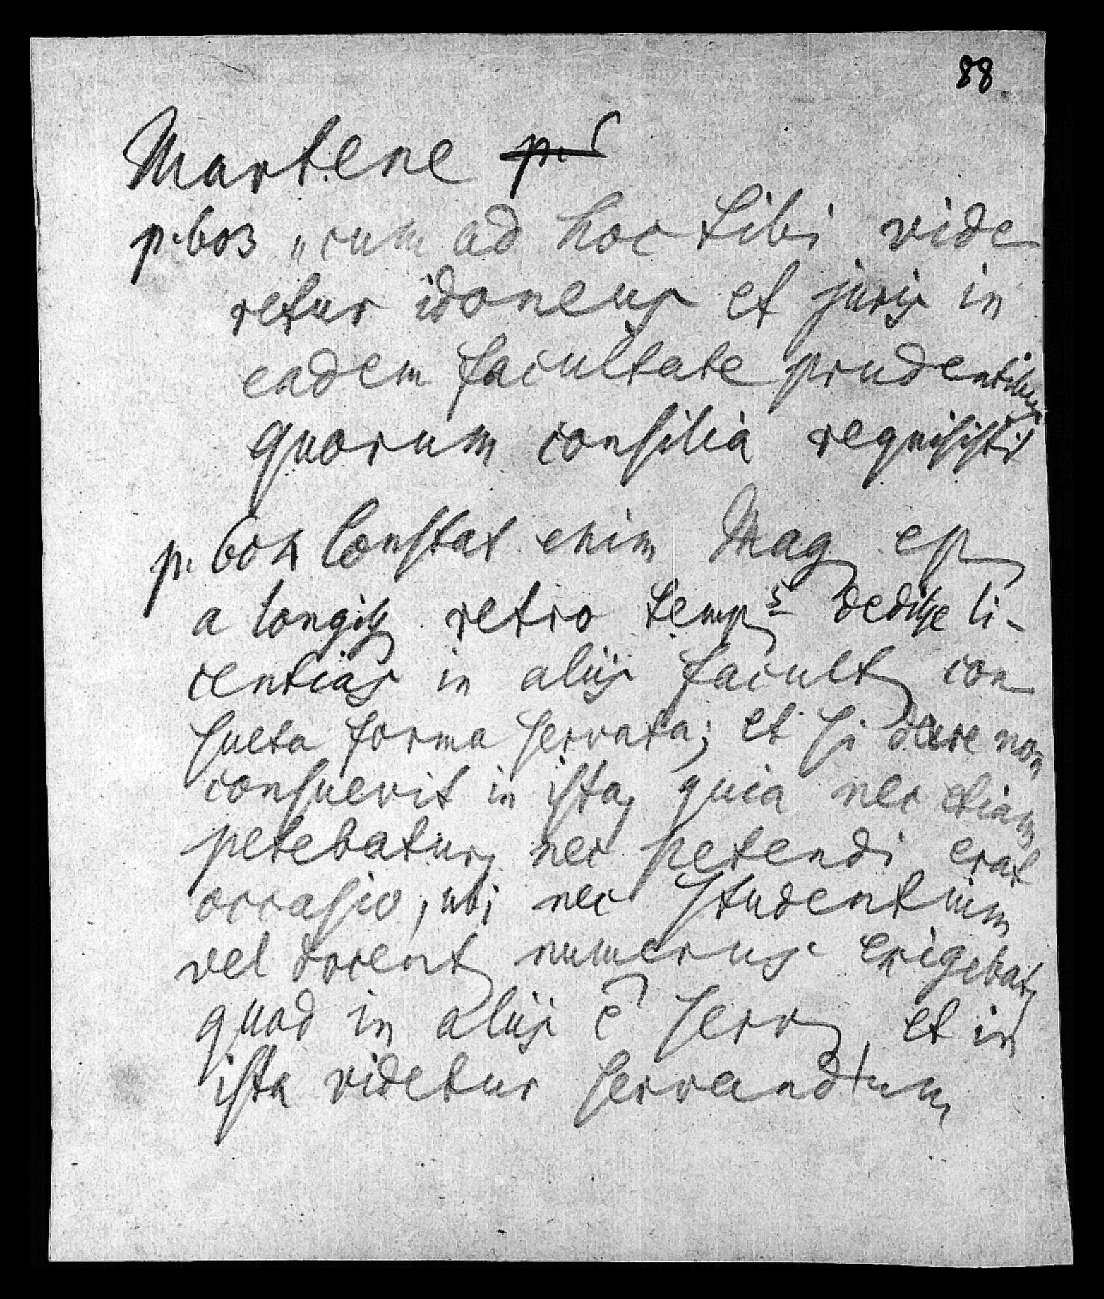 88.
Martene
p. 603 „cum ad hoc tibi vide
retur idoneus et juris in
eadem facultate prudentibus
quorum consilia requisisti
p. 604 Constat enim Mag ep
a longis retro temp dedisse li-
centias in aliis facult con
sueta forma servata; et si dare non
consuerit in ista, quia nec etiam
petebatur, nec petendi erat
occasio, ubi nec studentium
vel docent numerus exigebat,
quod in aliis e serv, et in
ista videtur servandum